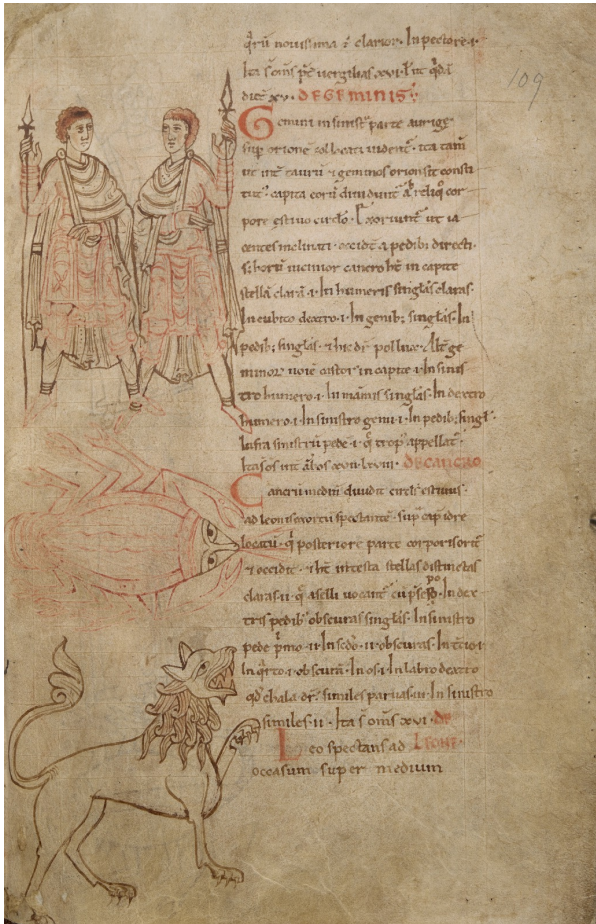 q̄rū nouissima ē clarior. In pectore .i.
Ita s̄ om̄s p̄t̄ uergilias xvi. l̄ ut q̄dā
dic̄ xv. DE GEMINIS.
109
Gemini in sinist̄ parte aurigę
sup̄ orionē collocati uident̄. ita tam̄
ut int̄ taurū & geminos orion sit consti
tut̄. capita eorū diuidunt̄ a reliq̄ cor
pore estiuo circl̄o. Exoriunt̄ ut ia
centes inclinati. occidt̄ a pedib; directi.
s; horū uicinior cancro h̄t in capite
stellā clarā .i. In humeris singl̄as claras.
In cubito dextro .i. In genib; singl̄as. In
pedib; singl̄as. & hic dr̄ pollux. Alt̄ ge
minor noīe castor in capite .i. In sinis
tro humero .i. In manus singl̄as. In dextro
humero .i. In sinistro genu .i. In pedib; singl̄.
Infra sinistrū pede .i. q̄ trop̄ appellat̄.
DE CANCRO
Cancrū mediū diuidit circl̄s estiuus.
ad leonis exortū spectante. sup̄ cap̄ idrę
locatū. q̄ posteriore parte corporis orit̄
& occidit. & h̄t in testa stellas distinctas
claras .ii. q̄ aselli uocant̄
tris pedib; obscuras singl̄as. In sinistro
pede p̄mo .ii. In sc̄do .ii. obscuras. In t̄tio .i.
In q̄rto .i. obscurā. In os .i. In labro dextro
qd̄ chala dr̄. similes paruas .iii. In sinistro
similes .ii. Ita s̄ om̄s xvi. DE
Leo spectans ad LEONE.
occasum super medium